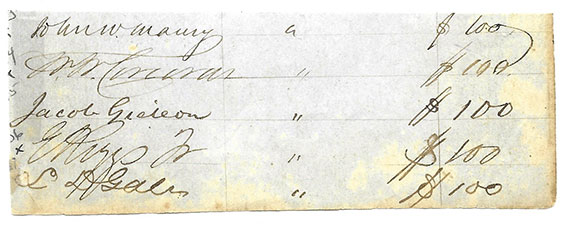 John W. Maury " $100
W. W. Corcoran " $100
Jacob Gideon " $100
E Riggs Jr " $100
$100